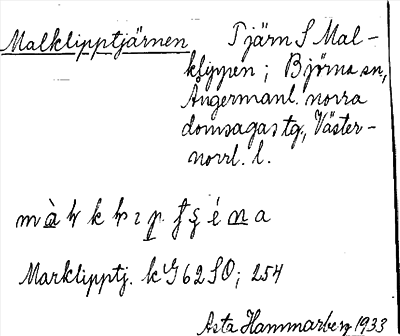 Malklipptjärnen Tjärn S Mal-
klippen; Björna sn,
Ångermanl. norra
domsagas tg, Väster-
norrl. l.
Marklipptj. kG 62 SO; 254
Asta Hammarberg 1933